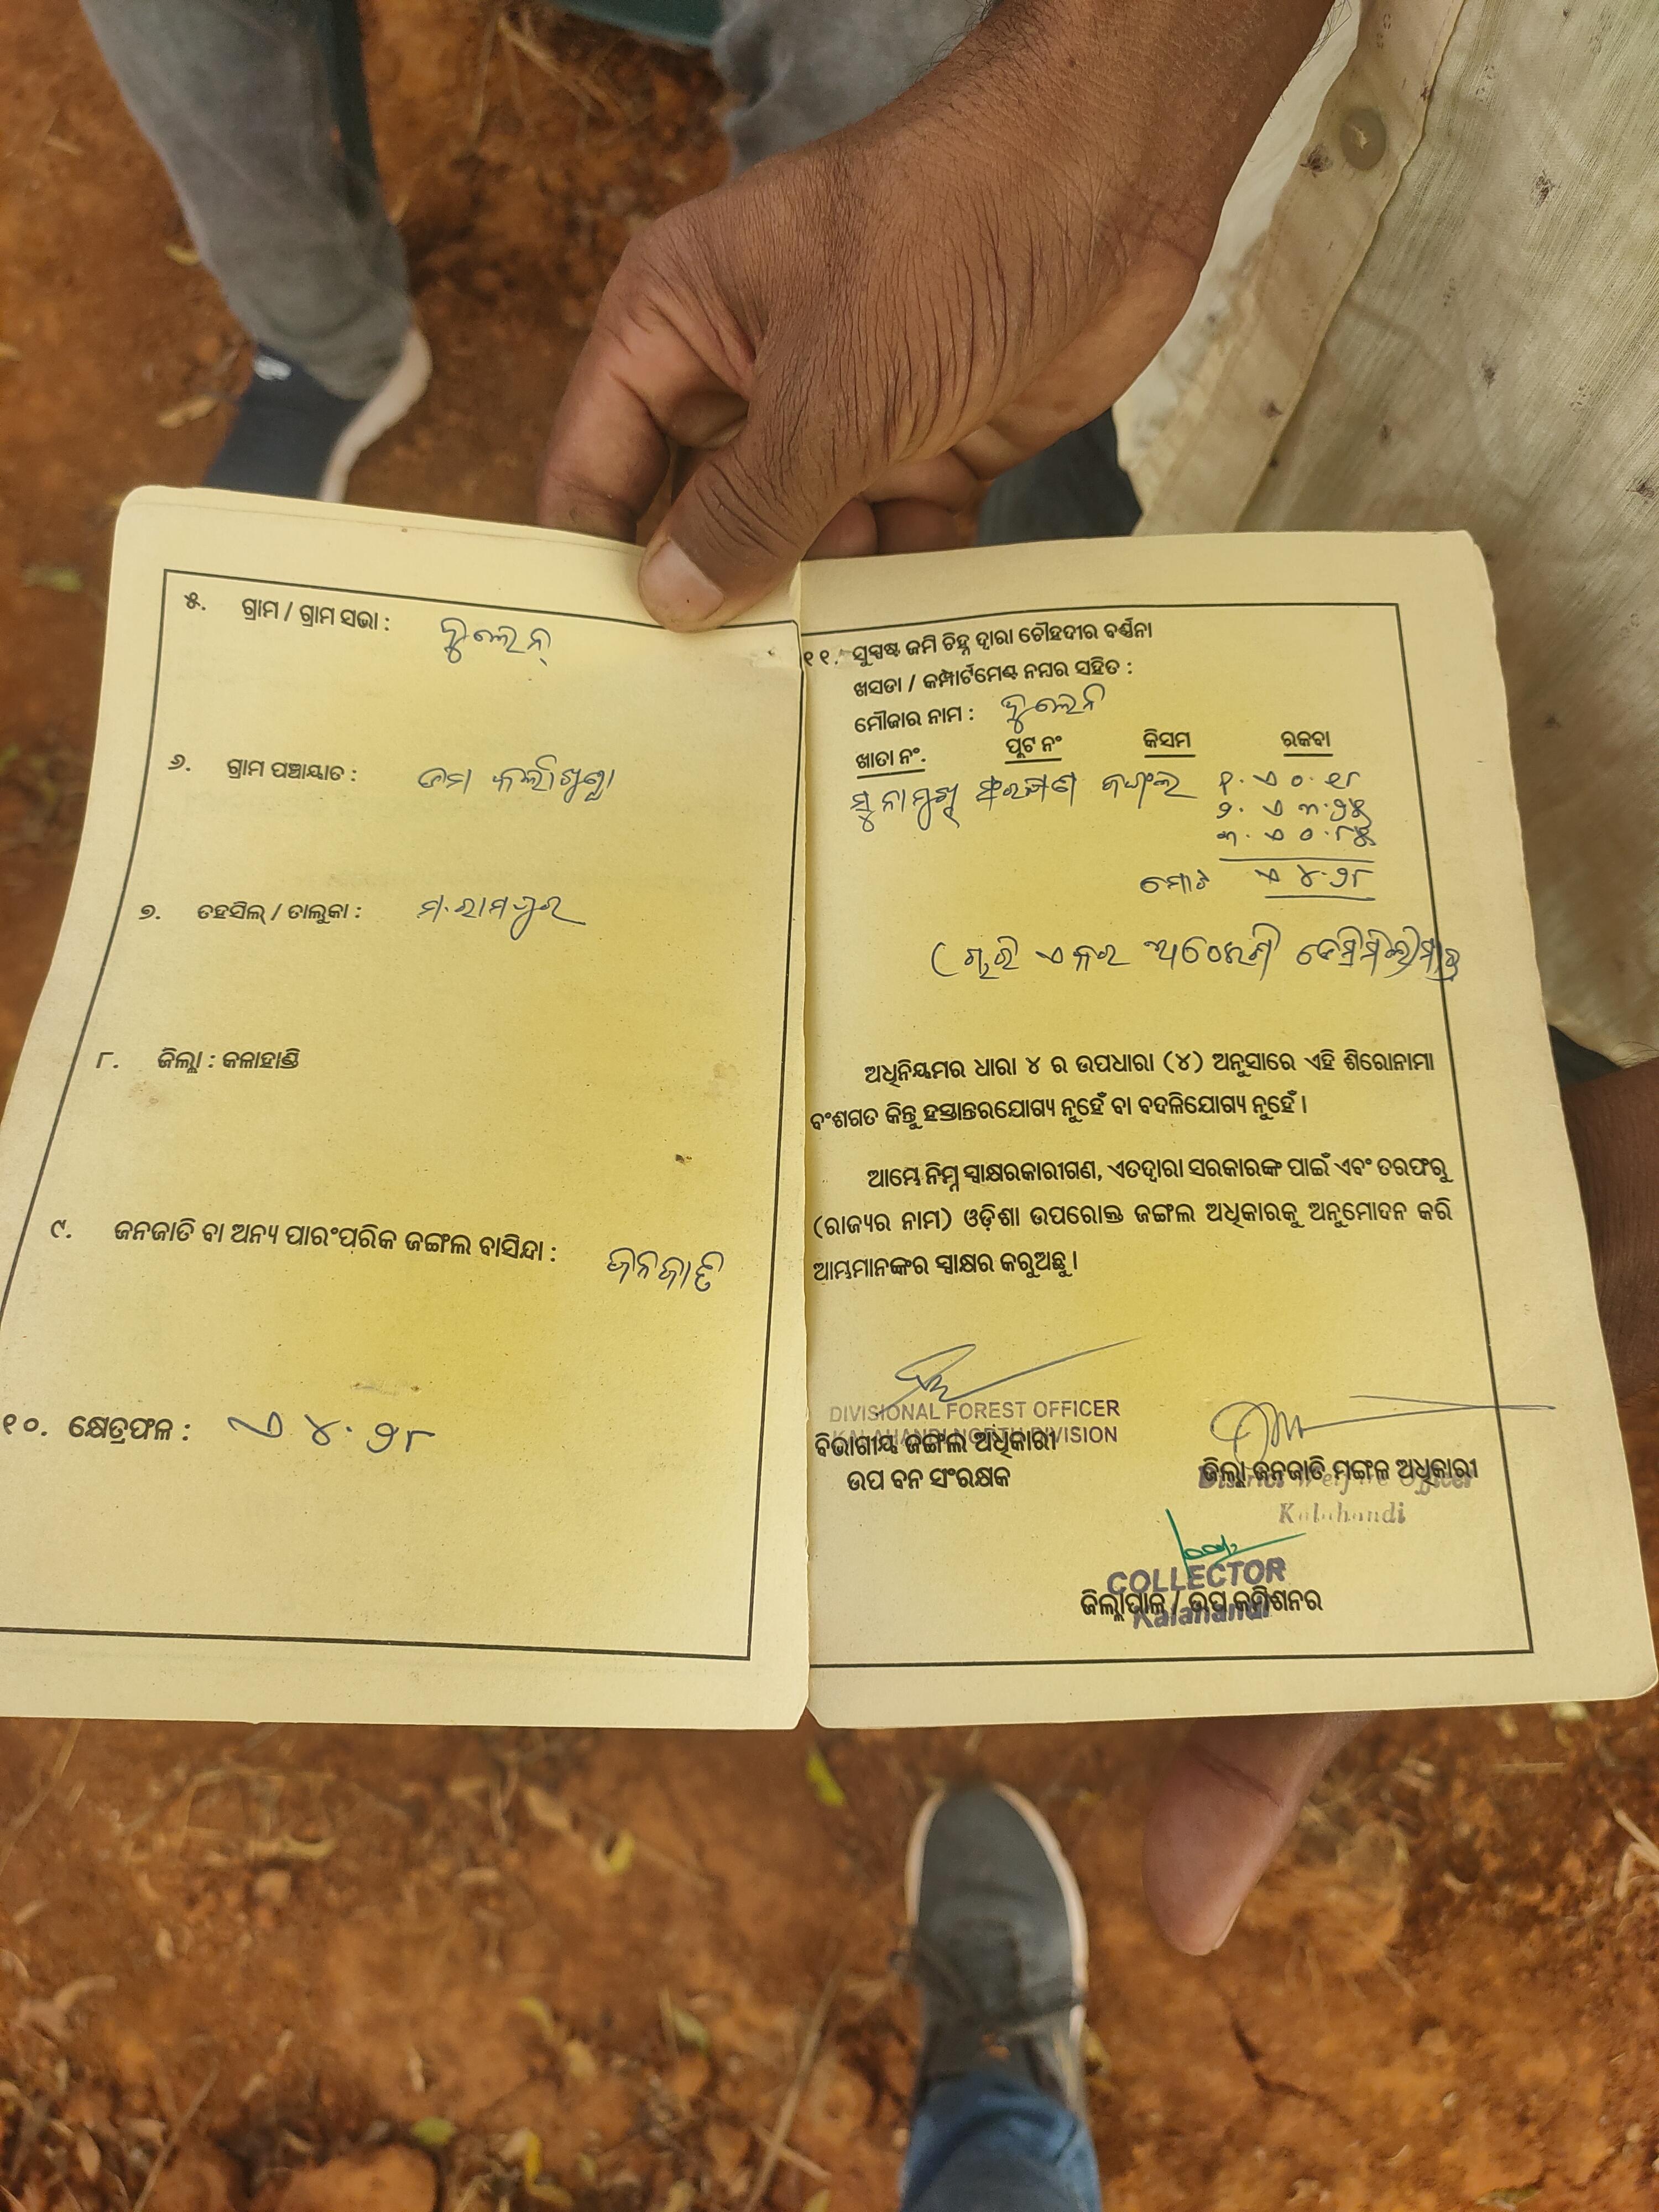 ୫. ଗ୍ରାମ / ଗ୍ରାମ ସଭା :
୬. ଗ୍ରାମ ପଞ୍ଚାୟାତ :
୭. ତହସିଲ୍ / ତାଲୁକା : ମ.ରାମପୁର
୮. ଜିଲ୍ଲା : କଳାହାଣ୍ଡି
୯. ଜନଜାତି ବା ଅନ୍ୟ ପାରଂପରିକ ଜଙ୍ଗଲ ବାସିନ୍ଦା : ଜନଜାତି
୧୦. କ୍ଷେତ୍ରଫଳ : ଏ ୪.୨୮
୧୧. ସୁସ୍ପଷ୍ଟ ଜମି ଚିହ୍ନ ଦ୍ୱାରା ଚୌହଦୀର ବର୍ଣ୍ଣନା
ଖସଡା / କମ୍ପାର୍ଟମେଣ୍ଟ ନମ୍ବର ସହିତ :
ମୌଜାର ନାମ :
ଖାତା ନଂ. ପ୍ଲଟ ନଂ କିସମ ରକବା
ସଂରକ୍ଷଣ ଜଙ୍ଗଲ
ମୋଟ ଏ ୪.୨୮
ଅଧିନିୟମର ଧାରା ୪ ର ଉପଧାରା (୪) ଅନୁସାରେ ଏହି ଶିରୋନାମା
ବଂଶଗତ କିନ୍ତୁ ହସ୍ତାନ୍ତରଯୋଗ୍ୟ ନୁହେଁ ବା ବଦଳିଯୋଗ୍ୟ ନୁହେଁ ।
ଆମ୍ଭେ ନିମ୍ନ ସ୍ୱାକ୍ଷରକାରୀଗଣ, ଏତଦ୍ୱାରା ସରକାରଙ୍କ ପାଇଁ ଏବଂ ତରଫରୁ
(ରାଜ୍ୟର ନାମ) ଓଡ଼ିଶା ଉପରୋକ୍ତ ଜଙ୍ଗଲ ଅଧିକାରକୁ ଅନୁମୋଦନ କରି
ଆମ୍ଭମାନଙ୍କର ସ୍ୱାକ୍ଷର କରୁଅଛୁ ।
DIVISIONAL FOREST OFFICER
KALAHANDI NORTH DIVISION
ବିଭାଗୀୟ ଜଙ୍ଗଲ ଅଧିକାରୀ
ଉପ ବନ ସଂରକ୍ଷକ
ଜିଲ୍ଲା ଜନଜାତି ମଙ୍ଗଳ ଅଧିକାରୀ
District Welfare Officer
Kalahandi
COLLECTOR
ଜିଲ୍ଲାପାଳ / ଉପ କମିଶନର
Kalahandi